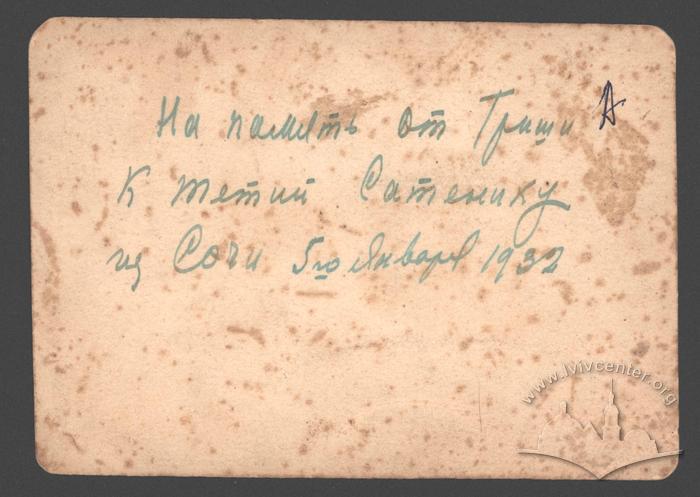 На память от Гриши А
К тетий Сатенику
из Сочи 5го января 1932
www.lvivcenter.org